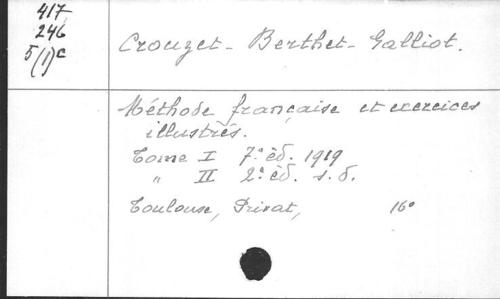 417
246
5(1)c
Crouzet - Berthet - Galliot.
Méthode française et exercices
illustrés.
Tome I 7.e éd. 1919
" II 2.e éd. s. d.
Toulouse, Privat, 16°